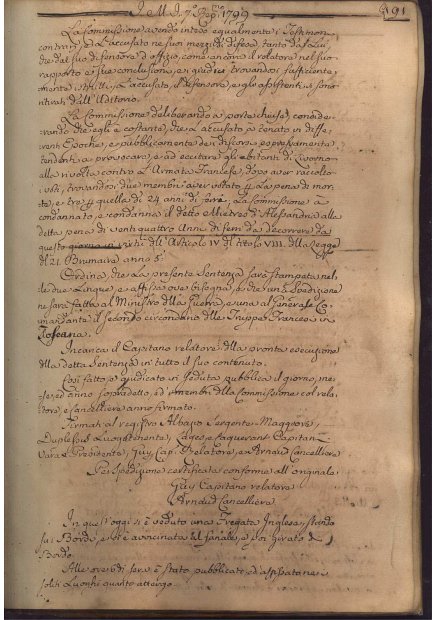 1799
91
La Commissione avendo inteso egualmente i Testimoni
contrari, ed l'accusato ne suoi mezzi di difesa, tanto da Lui,
che dal suo difensore d'ofizio, come ancora il relatore nel suo
rapporto e sue conclusione, e i giudici trovandosi sufficiente
mente istruiti, l'accusato, il difensore, e gli assistenti si sono
ritirati dall'Uditorio.
La Commissione deliberando a porte chiuse, conside
rando che egli è costante, che l'accusato à tenuto in diffe
renti Epoche, e pubblicamente dei discorsi espressamente
tendenti a provocare, e ad eccitare gli abitanti di Livorno
alla rivolta contro l'Armata Francese, dopo aver raccolto
i voti, trovandosi due membri aver votato per La pena di mor
te, e tre per quella di 24 anni di ferri. La Commissione à
condannato, e condanna il detto Mietres d'Alesandria alla
detta pena di venti quattro Anni di ferri da decorrere da
questo giorno in virtù dell'Articolo IV del titolo VIII. della Legge
del 21. Brumaire anno 5º
Ordina, che la presente Sentenza sarà stampata nel
le due Lingue, e affissa ove bisogna, e che una Spedizione
ne sarà fatta al Ministro della Guerra, e una al Generale Co
mandante il secondo circondario delle Truppe Francesi in
Toscana.
Incarica il Capitano relatore della pronta esecuzione
della detta Sentenza in tutto il suo contenuto.
Così fatto, e giudicato in seduta pubblica il giorno, me
se, ed anno sopradetto, ed i membri della Commissione col rela
tore, e Cancelliere anno firmato.
Firmati al registro Sergente Maggiore,
Luogotenente, Capitani
Presidente, Guy Cap. Relatore, e Arnaud Cancelliere
Per spedizione certificata conforme all'originale
Guy Capitano relatore
Arnaud Cancelliere.
In quest'oggi si è veduto una Fregata Inglese, stando
sui Bordi, e si è avvicinata al fanale, e poi girato di
Bordo.
Alle ore 6 di sera è stato pubblicato, ed
soliti Luoghi quanto attergo.